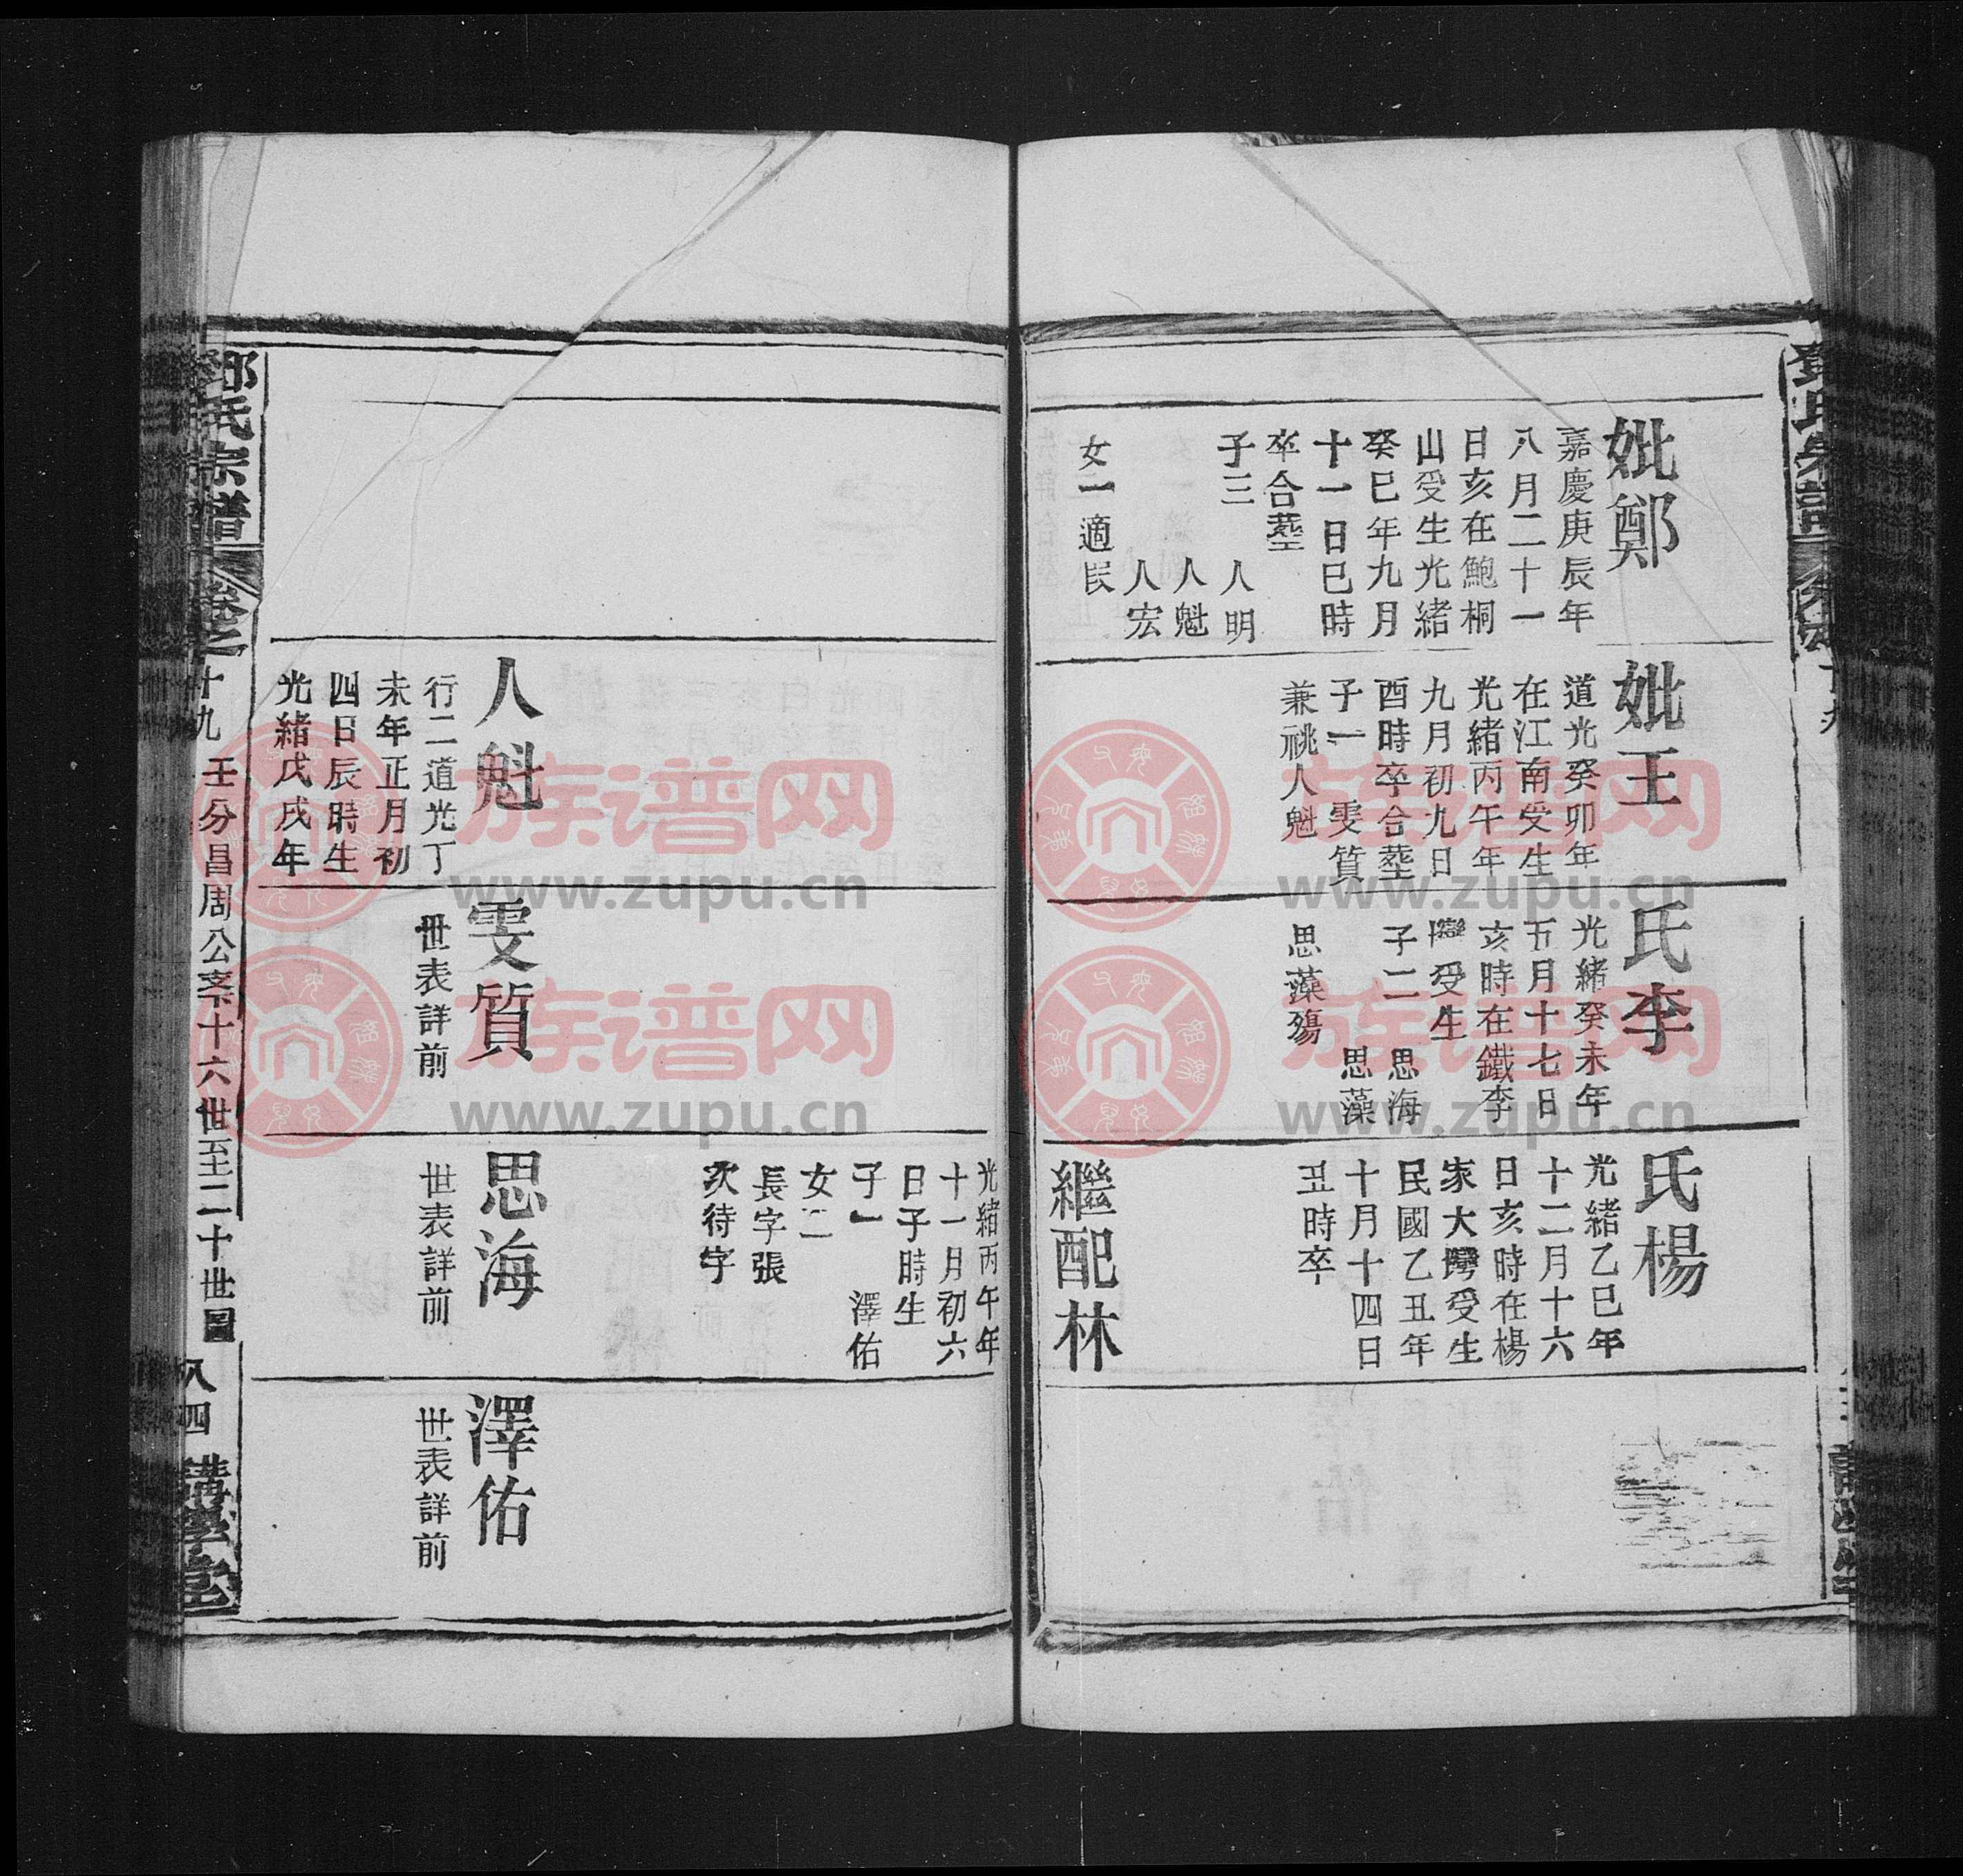 妣鄭
嘉慶庚辰年
八月二十一
日亥在鮑桐
山受生光緒
癸巳年九月
十一日巳時
卒合塟
子三 人明
人魁
人宏
女一適民
妣王
道光癸卯年
在江南受生
光緒丙午年
九月初九日
酉時卒合塟
子一 雯質
兼祧人魁
氏李
光緒癸未年
五月十七日
亥時在鐵李
灣受生
子二 思海
思藻
思藻殤
氏楊
光緒乙巳年
十二月十六
日亥時在楊
家大灣受生
民國乙丑年
十月十四日
丑時卒
繼配林
光緒丙午年
十一月初六
日子時生
子一 澤佑
女二
長字張
次待字
人魁
行二道光丁
未年正月初
四日辰時生
光緒戊戌年
雯質
世表詳前
思海
世表詳前
澤佑
世表詳前
鄧氏宗譜
卷之十九
壬分昌周公系十六世至二十世圖
八四
講學堂
族谱网
www.zupu.cn
族谱网
www.zupu.cn
族谱网
www.zupu.cn
族谱网
www.zupu.cn